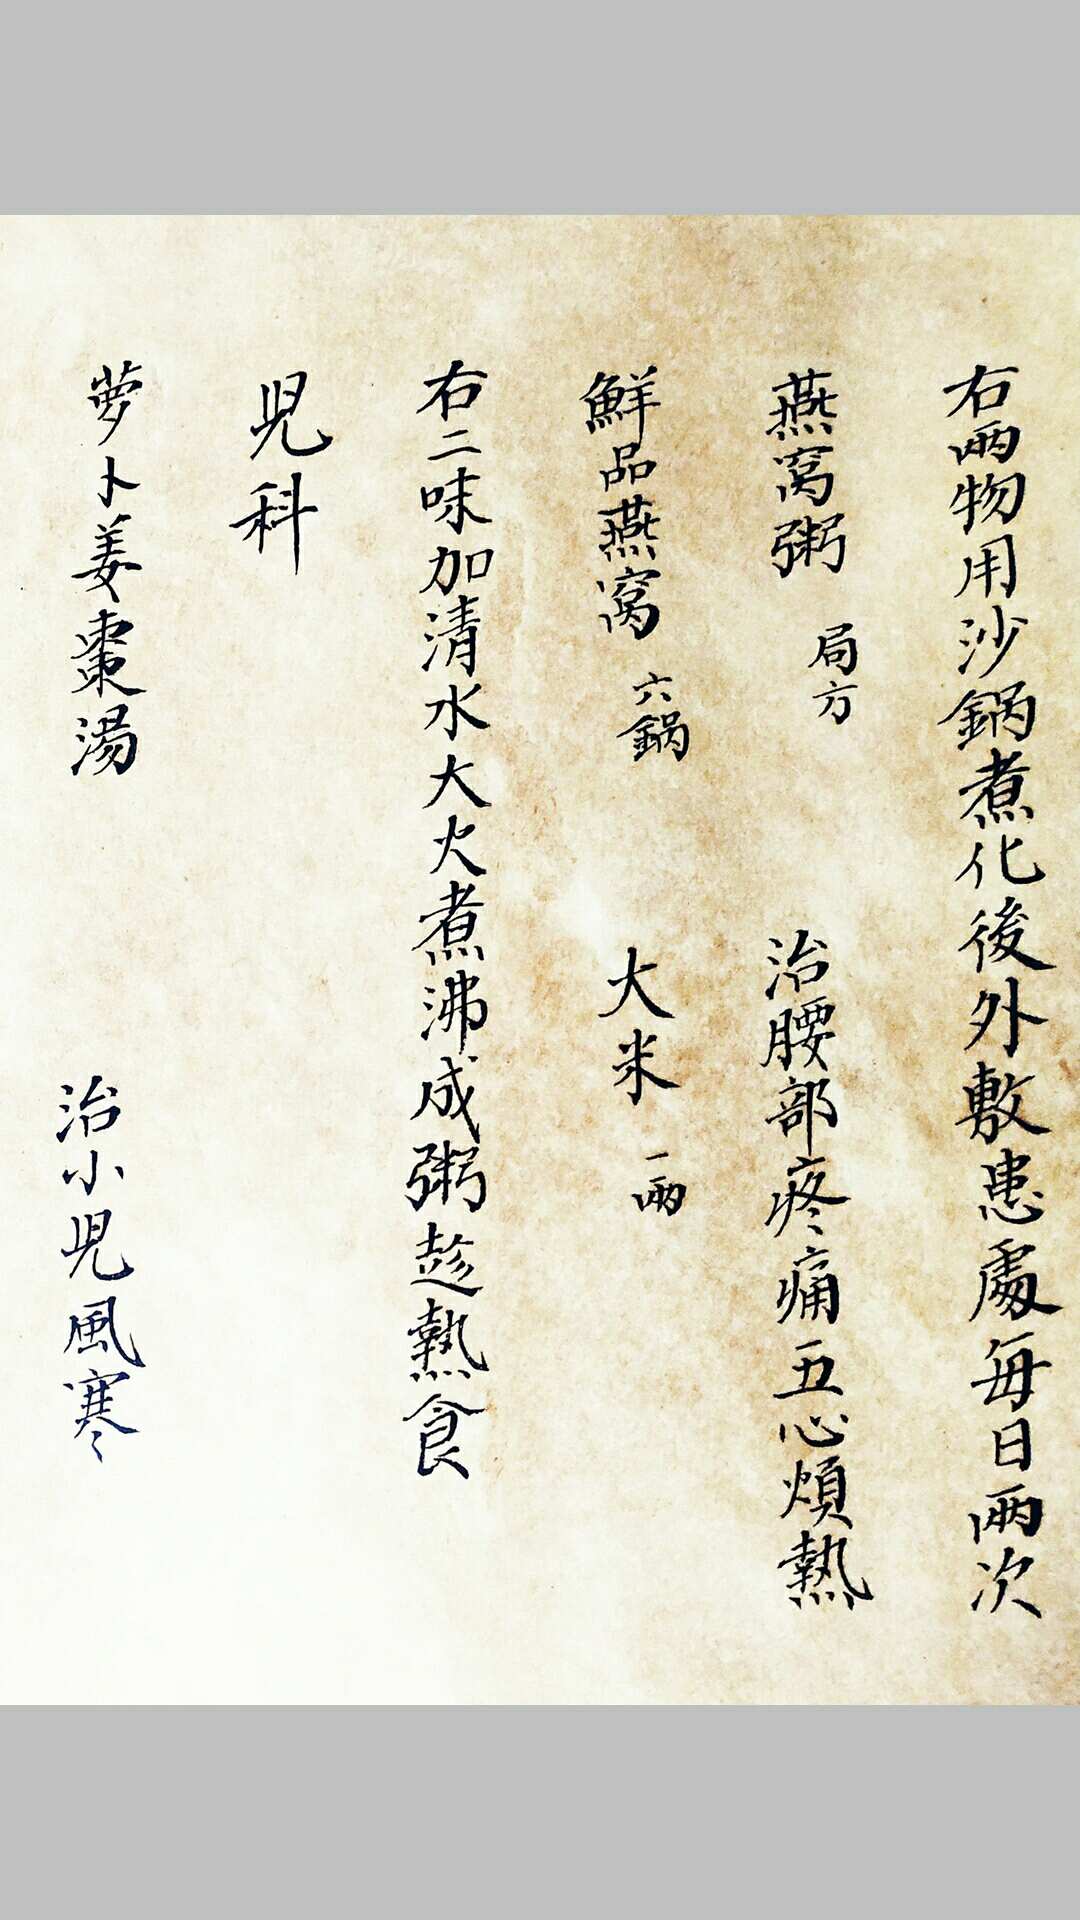 右兩物用沙鍋煮化後外敷患處每日兩次
燕窩粥 局方 治腰部疼痛五心煩熱
鮮品燕窩 六鍋 大米 一兩
右二味加清水大火煮沸成粥趁熱食
兒科
萝卜姜棗湯 治小兒風寒